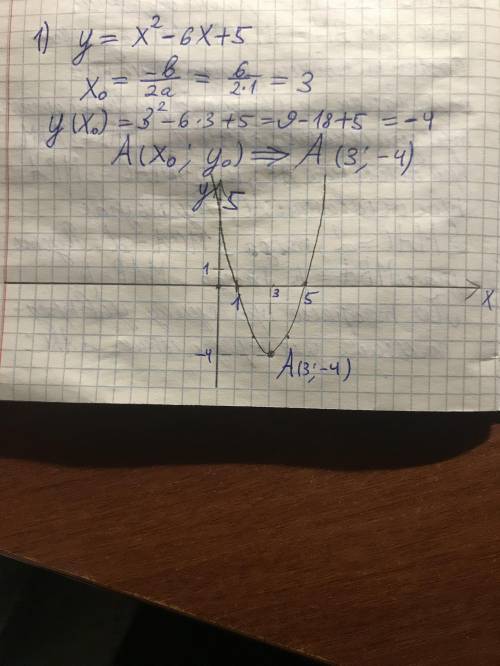 1) y = x² - 6x + 5
x₀ = -b/2a = 6/2·1 = 3
y(x₀) = 3² - 6·3 + 5 = 9 - 18 + 5 = -4
A(x₀; y₀) ⇒ A(3; -4)
y 5
1
1 3 5 x
-4 A(3; -4)